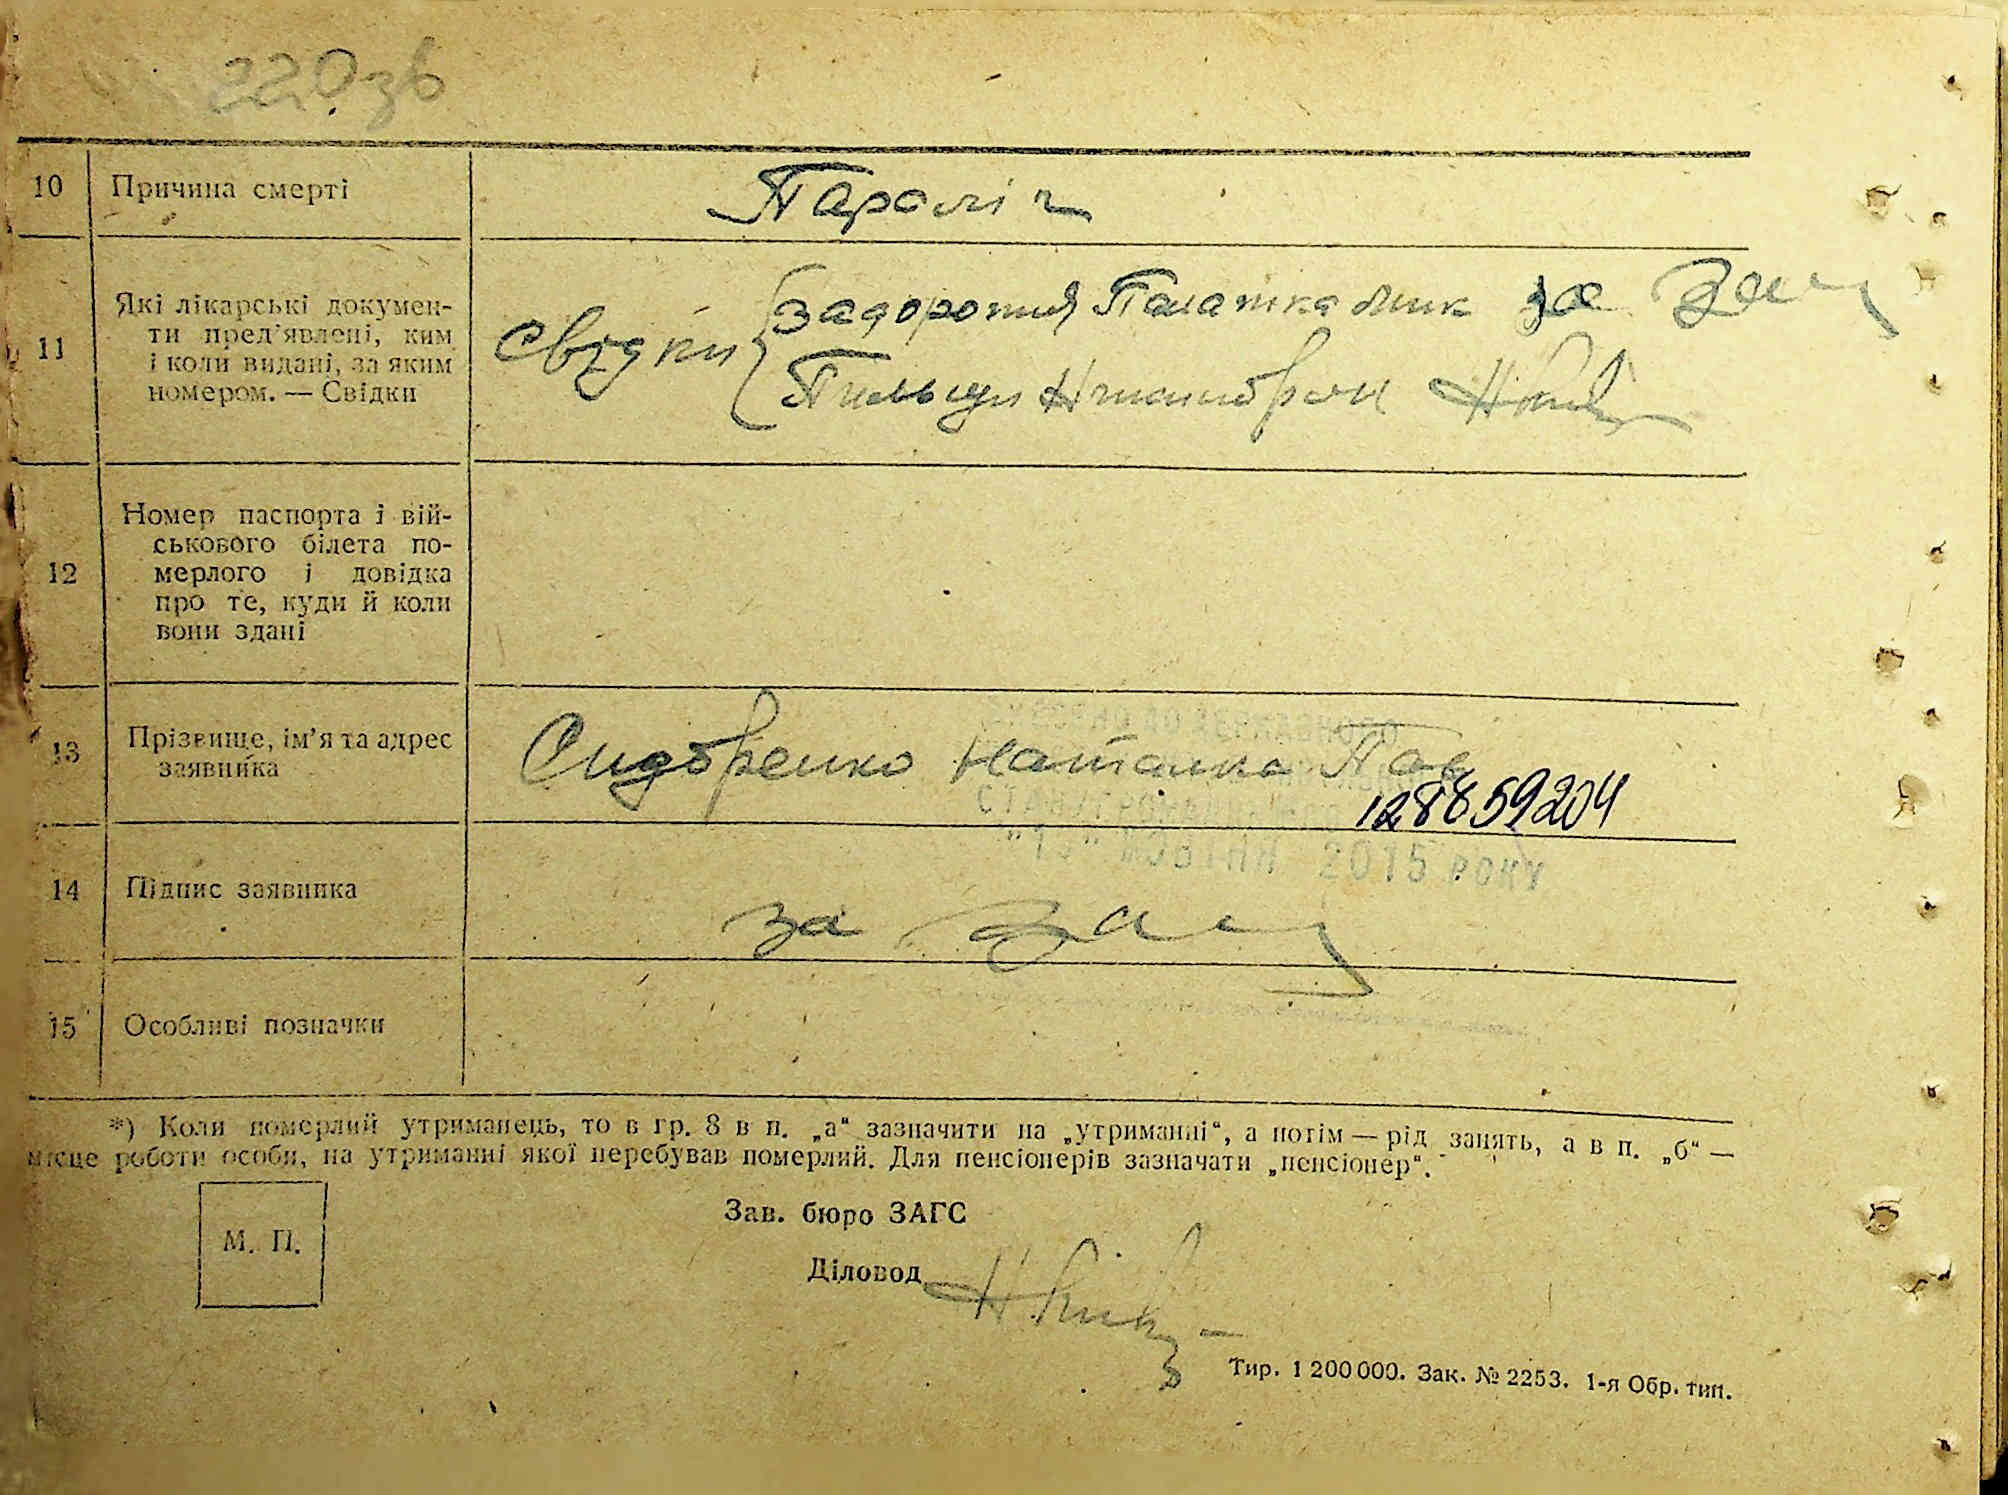 220зв
10 Причина смерті Параліч
11 Які лікарські докумен-
ти пред'явлені, ким
і коли видані, за яким
номером. — Свідки
свідки
за
12 Номер паспорта і вій-
ськового білета по-
мерлого і довідка
про те, куди й коли
вони здані
13 Прізвище, ім'я та адрес
заявника
Сидоренко Наталка Пав
128859204
2015 РОКУ
14 Підпис заявника за
15 Особливі позначки
*) Коли померлий утриманець, то в гр. 8 в п. „а“ зазначити на „утриманні“, а потім — рід занять, а в п. „б“ —
місце роботи особи, на утриманні якої перебував померлий. Для пенсіонерів зазначати „пенсіонер“.
М. П.
Зав. бюро ЗАГС
Діловод
Тир. 1 200 000. Зак. № 2253. 1-я Обр. тип.